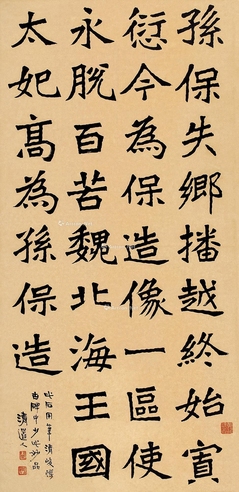 孫保失鄉播越終始
愆今為保造像一區使
永脫百苦魏北海王國
太妃髙為孫保造
此石用筆清
中少此妙品
清道人